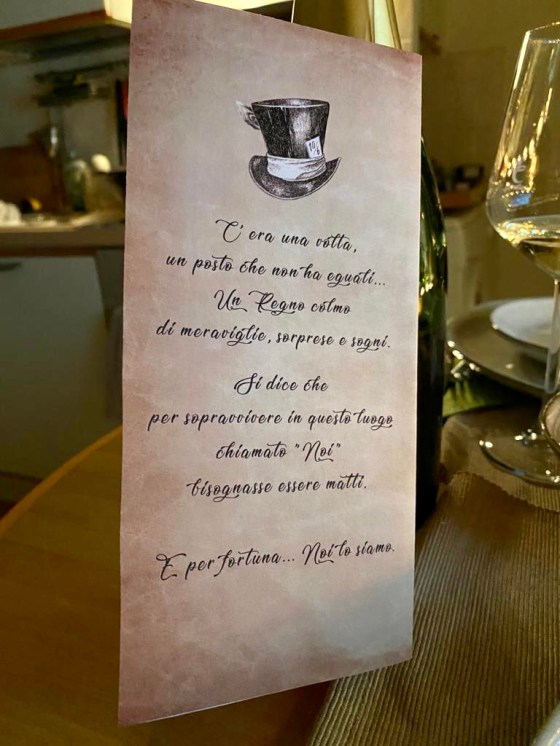 10/6
C'era una volta,
un posto che non ha eguali...
Un Regno colmo
di meraviglie, sorprese e sogni.
Si dice che
per sopravvivere in questo luogo
chiamato "Noi"
bisognasse essere matti.
E per fortuna... Noi lo siamo.